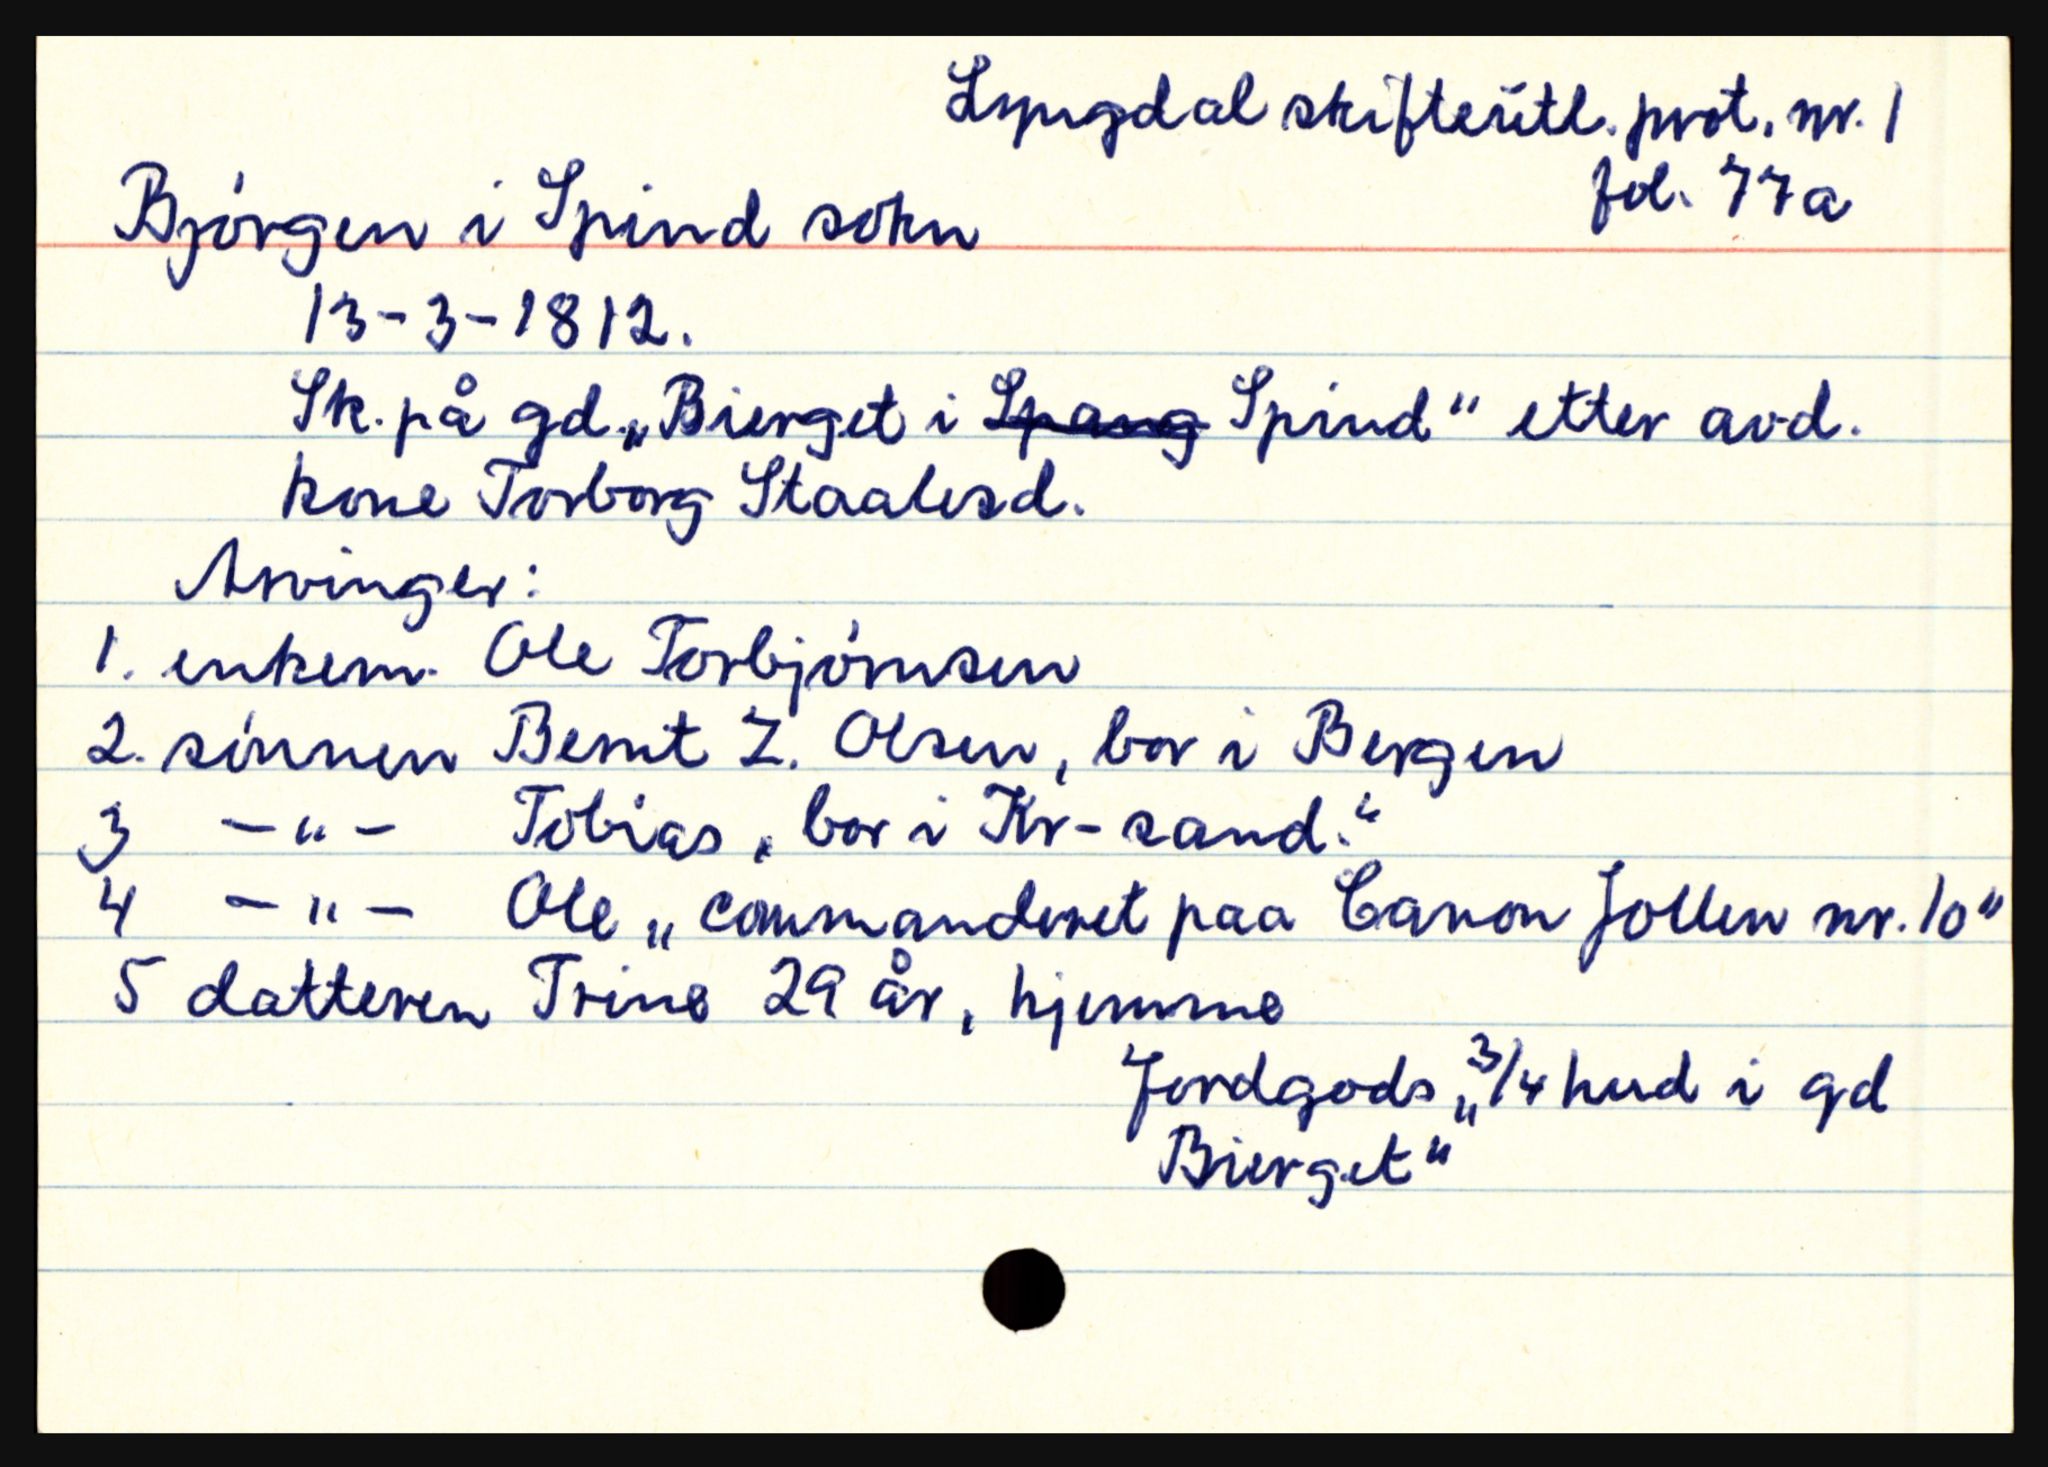 Lyngdal skifteutl. prot. nr. 1
fol. 77a
Bjørgen i Spind sokn
13-3-1812.
Sk. på gd. „Bierget i Spang Spind" etter avd.
kone Torborg Staalesd.
Arvinger:
1. enkem. Ole Torbjørnsen
2. sønnen Bernt Z. Olsen, bor i Bergen
3 -"- Tobias, bor i Kr-sand."
4 -"- Ole „commanderet paa Canon Jollen nr. 10"
5 datteren Trine 29 år, hjemme
Jordgods „3/4 hud i gd
Bierget"